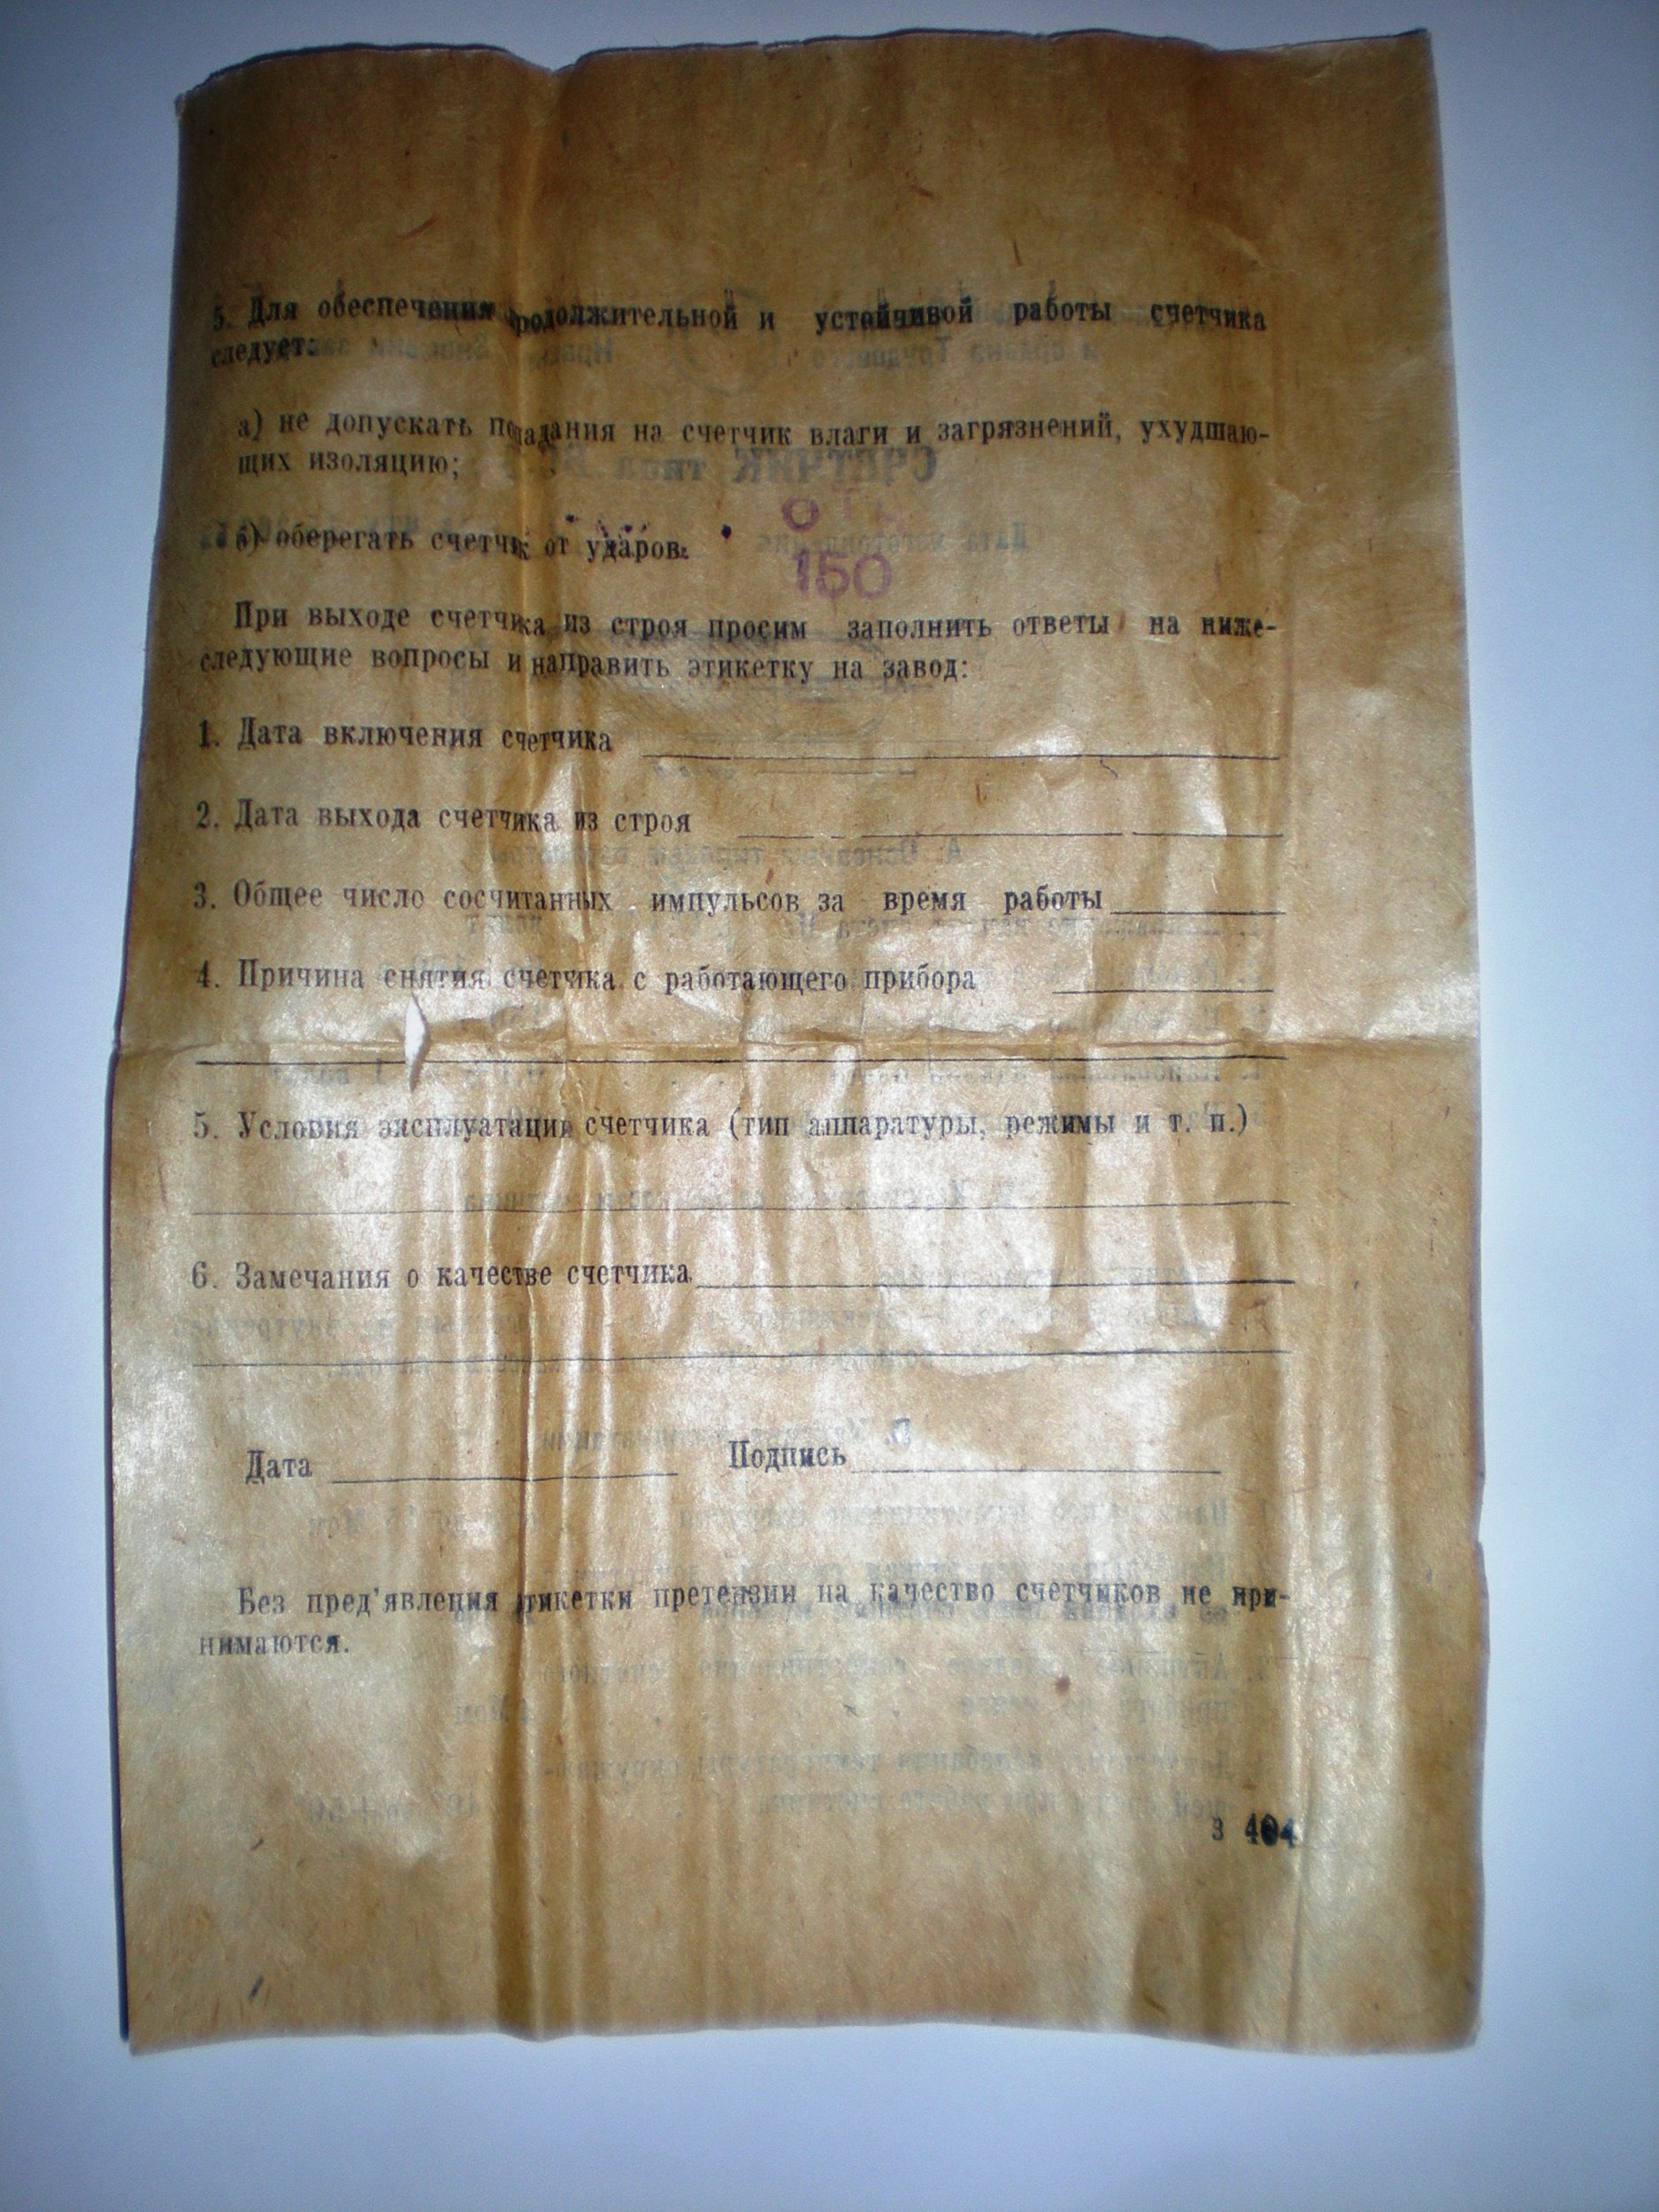 5. Для обеспечения продолжительной и устойчивой работы счетчика
следует:
а) не допускать попадания на счетчик влаги и загрязнений, ухудшаю-
щих изоляцию;
б) оберегать счетчик от ударов.
ОТК
150
При выходе счетчика из строя просим заполнить ответы на ниже-
следующие вопросы и направить этикетку на завод:
1. Дата включения счетчика
2. Дата выхода счетчика из строя
3. Общее число сосчитанных импульсов за время работы
4. Причина снятия счетчика с работающего прибора
5. Условия эксплуатации счетчика (тип аппаратуры, режимы и т. п.)
6. Замечания о качестве счетчика
Дата Подпись
Без пред'явления этикетки претензии на качество счетчиков не при-
нимаются.
З 404